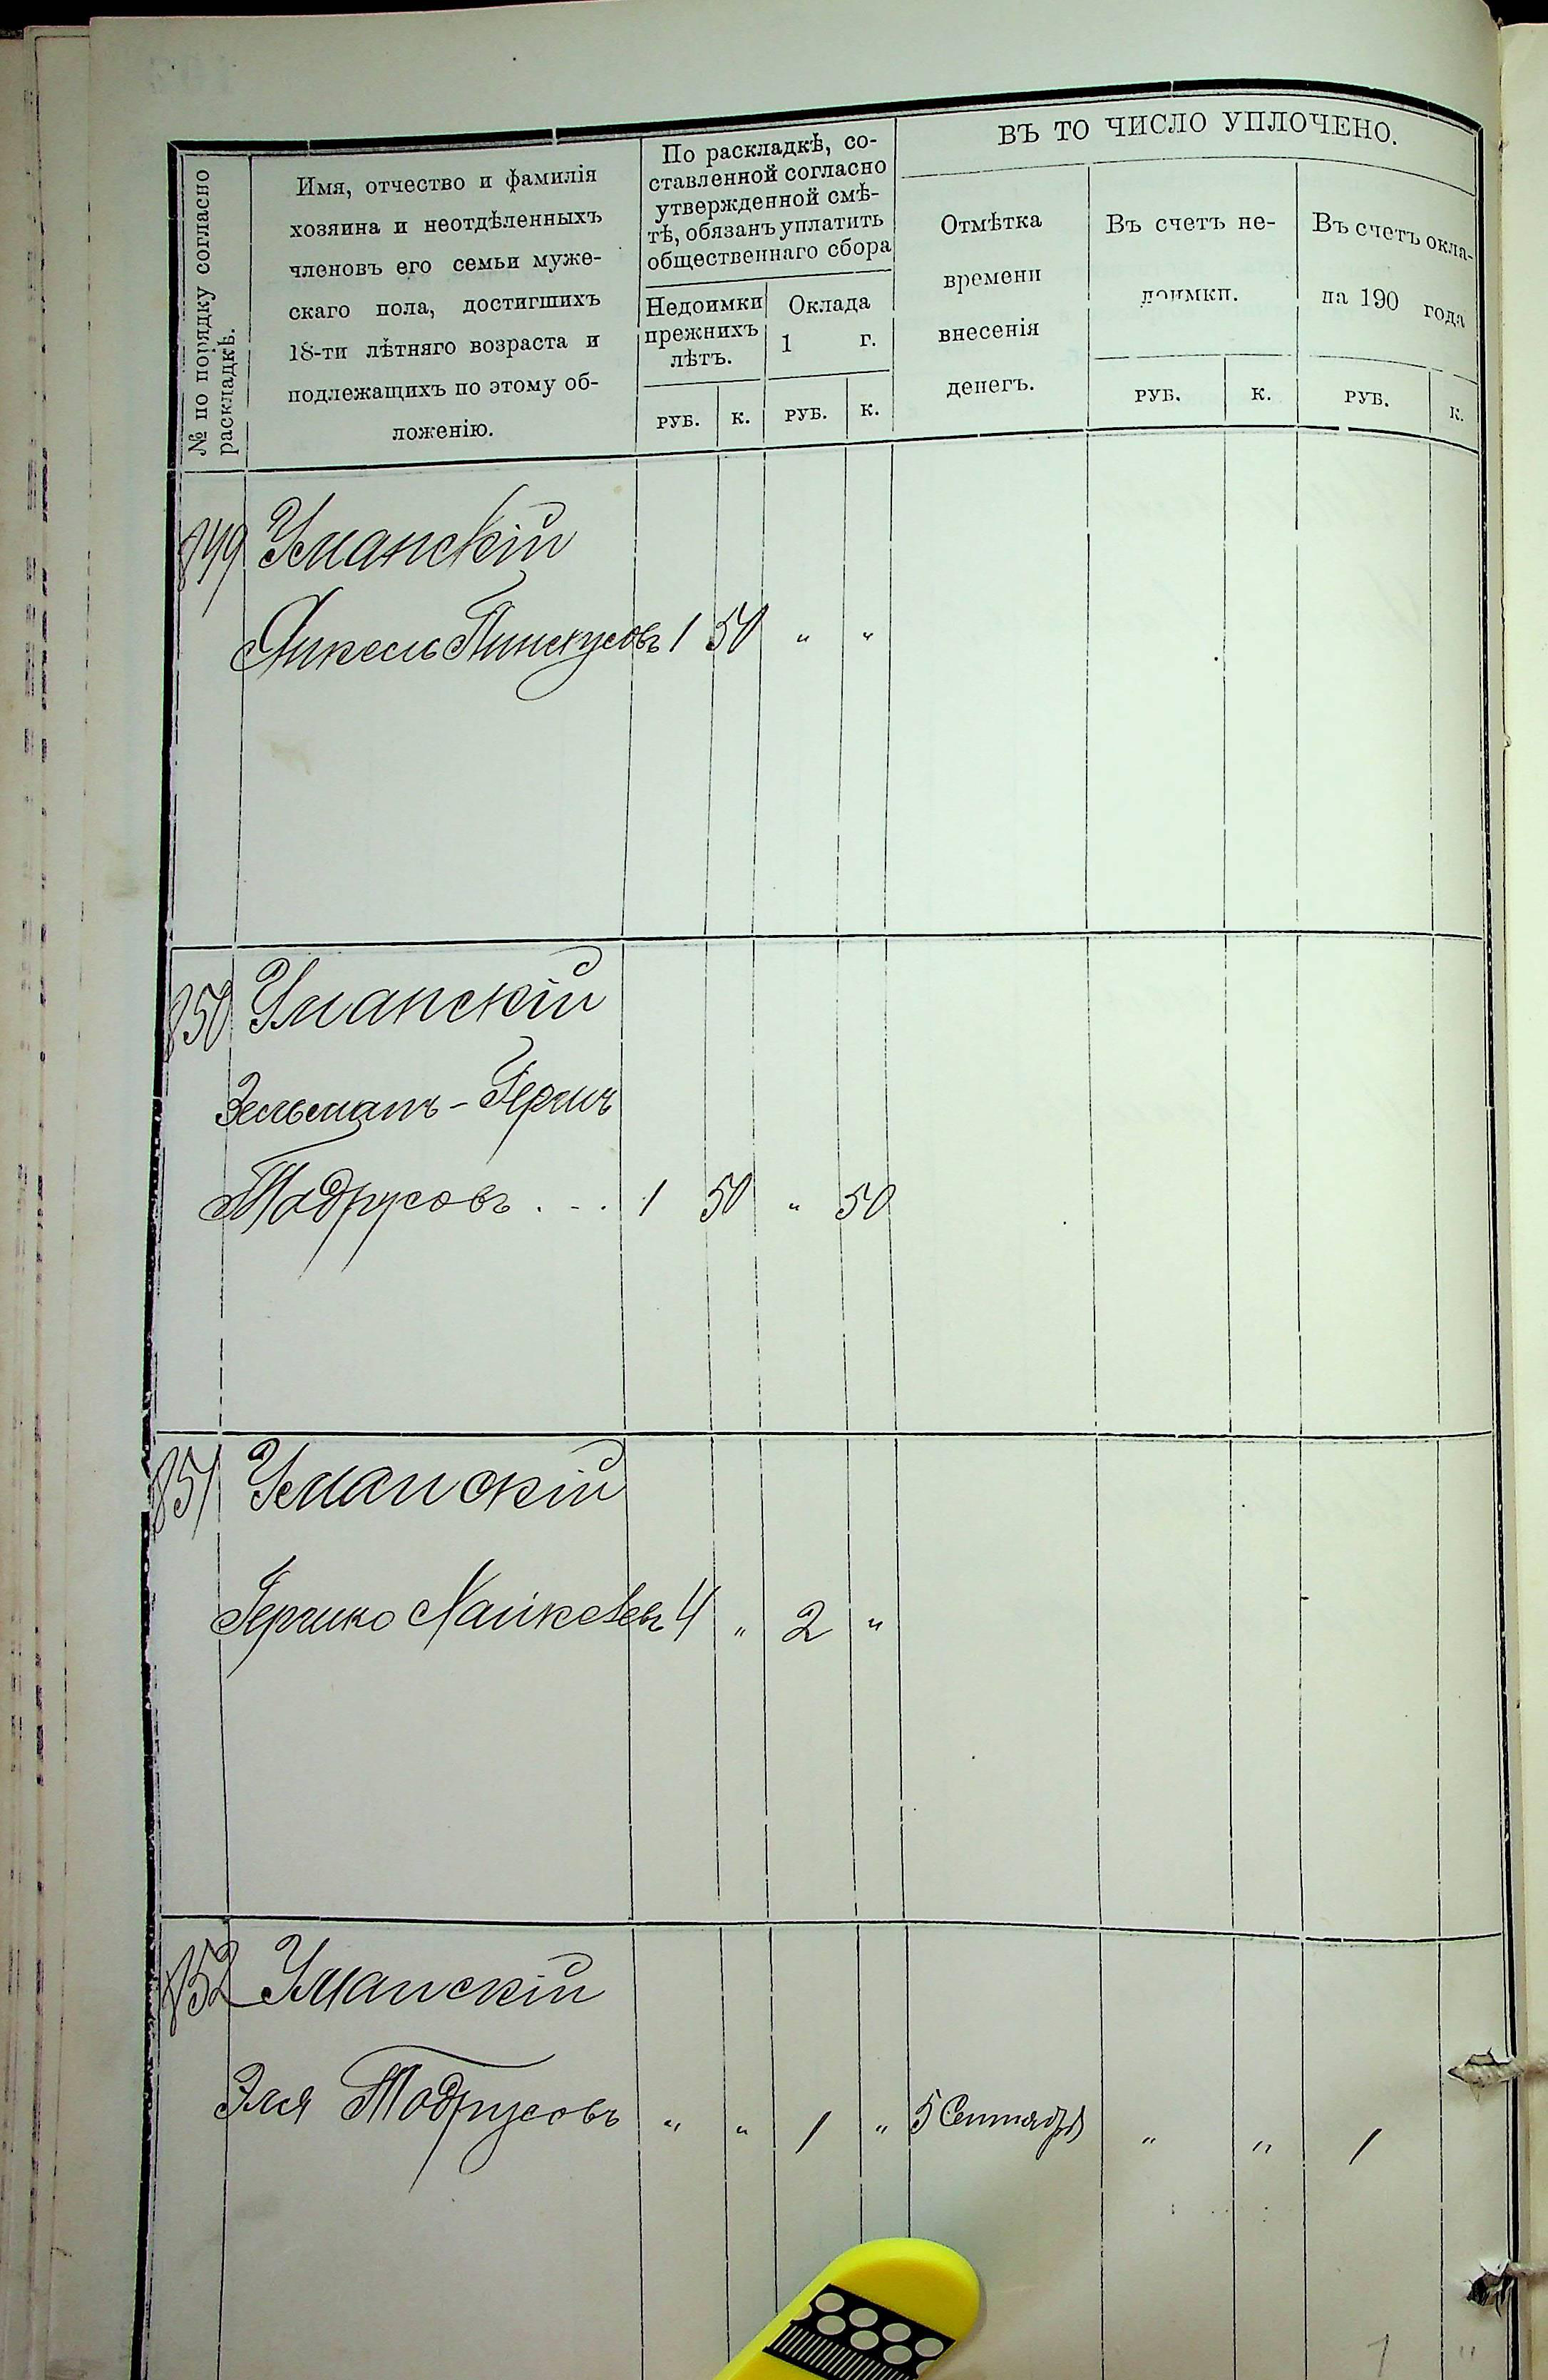 № по порядку согласно
раскладкѣ.
Имя, отчество и фамилія
хозяина и неотдѣленныхъ
членовъ его семьи муже-
скаго пола, достигшихъ
18-ти лѣтняго возраста и
подлежащихъ по этому об-
ложенію.
По раскладкѣ, со-
ставленной согласно
утвержденной смѣ-
тѣ, обязанъ уплатить
общественнаго сбора
Недоимки
прежнихъ
лѣтъ.
Оклада
1 г.
РУБ. К. РУБ. К.
ВЪ ТО ЧИСЛО УПЛОЧЕНО.
Отмѣтка
времени
внесенія
денегъ.
Въ счетъ не-
доимки.
РУБ. К.
Въ счетъ окла-
да 190 года
РУБ. К.
849 Уманскій
Янкель Пинкусовъ 1 50 " "
850 Уманскій
Зельманъ-Гершъ
Тодрусовъ . - . 1 50 " 50
851 Уманскій
Гершко 4 " 2 "
852 Уманскій
Эля Тодрусовъ " " 1 " 5 Сентября " " 1
1 "